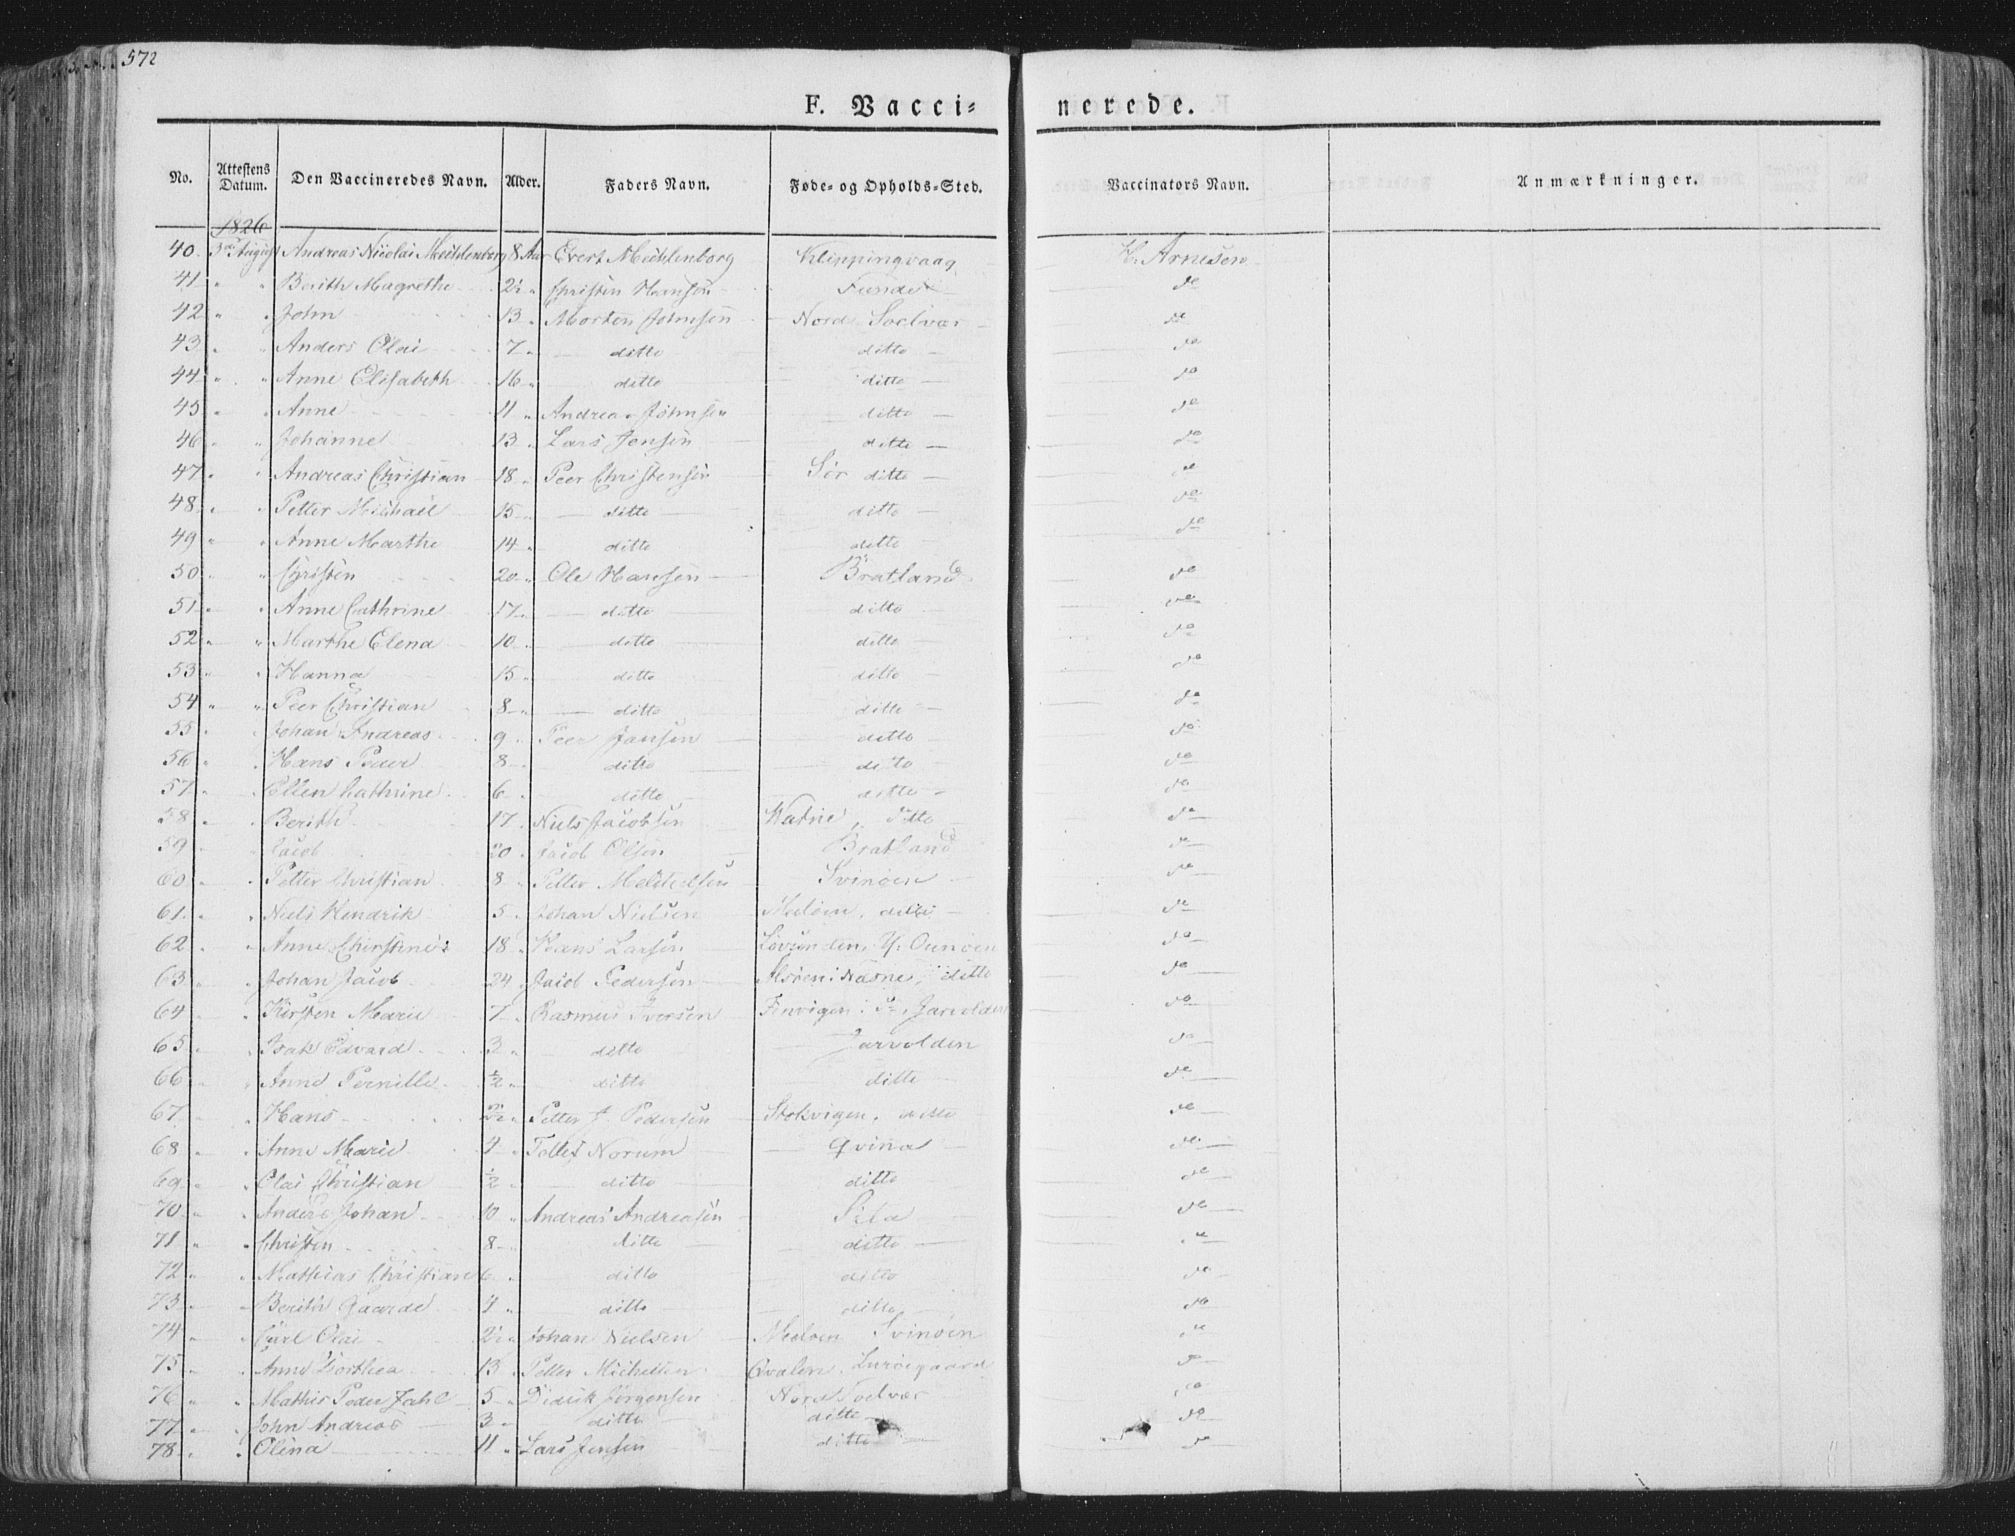 572
F. Vacci= nerede.
No. Attestens Datum. Den Vaccineredes Navn. Alder. Faders Navn. Føde- og Opholds-Sted. Vaccinators Navn. Anmærkninger.
1826
40. 3die August Andreas Nicolai Mechlenborg 8 Aar Evert Mechlenborg Klippingvaag H. Arnesen
41 " " Berith Magrethe Christen Hansen Funder do
42 " " John 13 " Morten Johnsen Nord Soelvær do
43 " " Anders Olai 7 " ditto ditto do
44 " " Anne Elisabeth 16 " ditto ditto do
45 " " Anne 11 " Andreas Johnsen ditto do
46 " " Johanne 13 " Lars Jensen ditto do
47 " " Andreas Christian 18 " Peer Christensen Sør ditto do
48 " " Petter Michael 15 " ditto ditto do
49 " " Anne Marthe 14 " ditto ditto do
50 " " Christen 20 " Ole Hansen Bratland do
51 " " Anne Cathrine 17 " ditto ditto do
52 " " Marthe Elena 10 " ditto ditto do
53 " " Hanna 15 " ditto ditto do
54 " " Peer Christian 8 " ditto ditto do
55 " " Johan Andreas 9 " Peer Jansen ditto do
56 " " Hans Peder 8 " ditto ditto do
57 " " Ellen Cathrine 6 " ditto ditto do
58 " " Berith 17 " Niels Jacobsen ditto do
59 " " Jacob 20 " Jacob Olsen Bratland do
60 " " Petter Christian 8 " Petter Svinøen do
61 " " Niels Hendrik 5 " Johan Nielsen ditto do
62 " " Anne 18 " Hans Larsen Lovunden do
63 " " Johan Jacob 24 " Jacob Pedersen ditto do
64 " " Kirsten Marie 7 " Rasmus Iversen Jarvolden do
65 " " Isak Edvard 3 " ditto Jarvolden do
66 " " Anne Pernille ½ " ditto ditto do
67 " " Hans Petter Pedersen Stokvigen, ditto do
68 " " Anne Marie 4 " Norum Qvina do
69 " " Olai Christian ½ " ditto ditto do
70 " " Anders Johan 10 " Andreas Andreasen Sila do
71 " " Christen 8 " ditto ditto do
72 " " Mathias Christian 6 " ditto ditto do
73 " " Berith 4 " ditto ditto do
74 " " Carl Olai Johan Nielsen Svinøen do
75 " " Anne Dorthea 13 " Petter Michelsen Qvalen, Lurøegaard do
76 " " Mathis Peder 5 " Didrik Jørgensen Nord Soelvær do
77 " " John Andreas 3 " ditto ditto do
78 " " Olina 11 " Lars Jensen ditto do